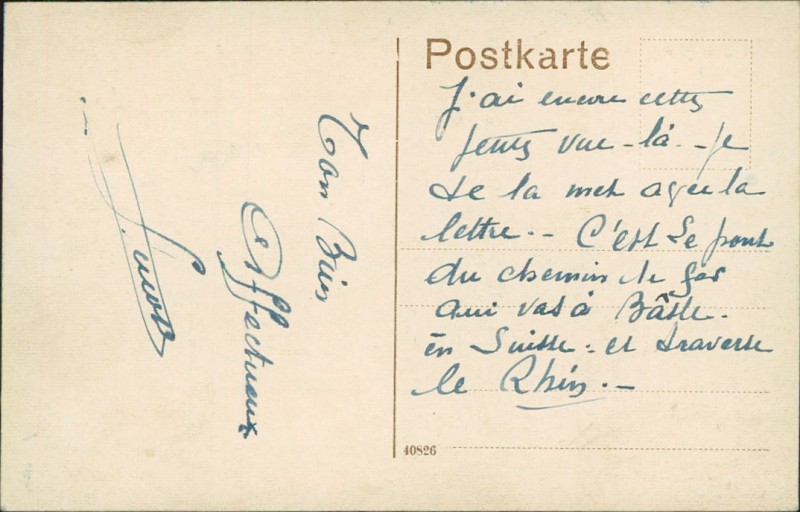 Postkarte
J'ai encore cette
petite vue-là - je
te la met avec la
lettre. - C'est le pont
du chemin de fer
qui vas à Bâsle.
en Suisse. et traverse
le Rhin. -
Ton Bien
Affectueux
40826